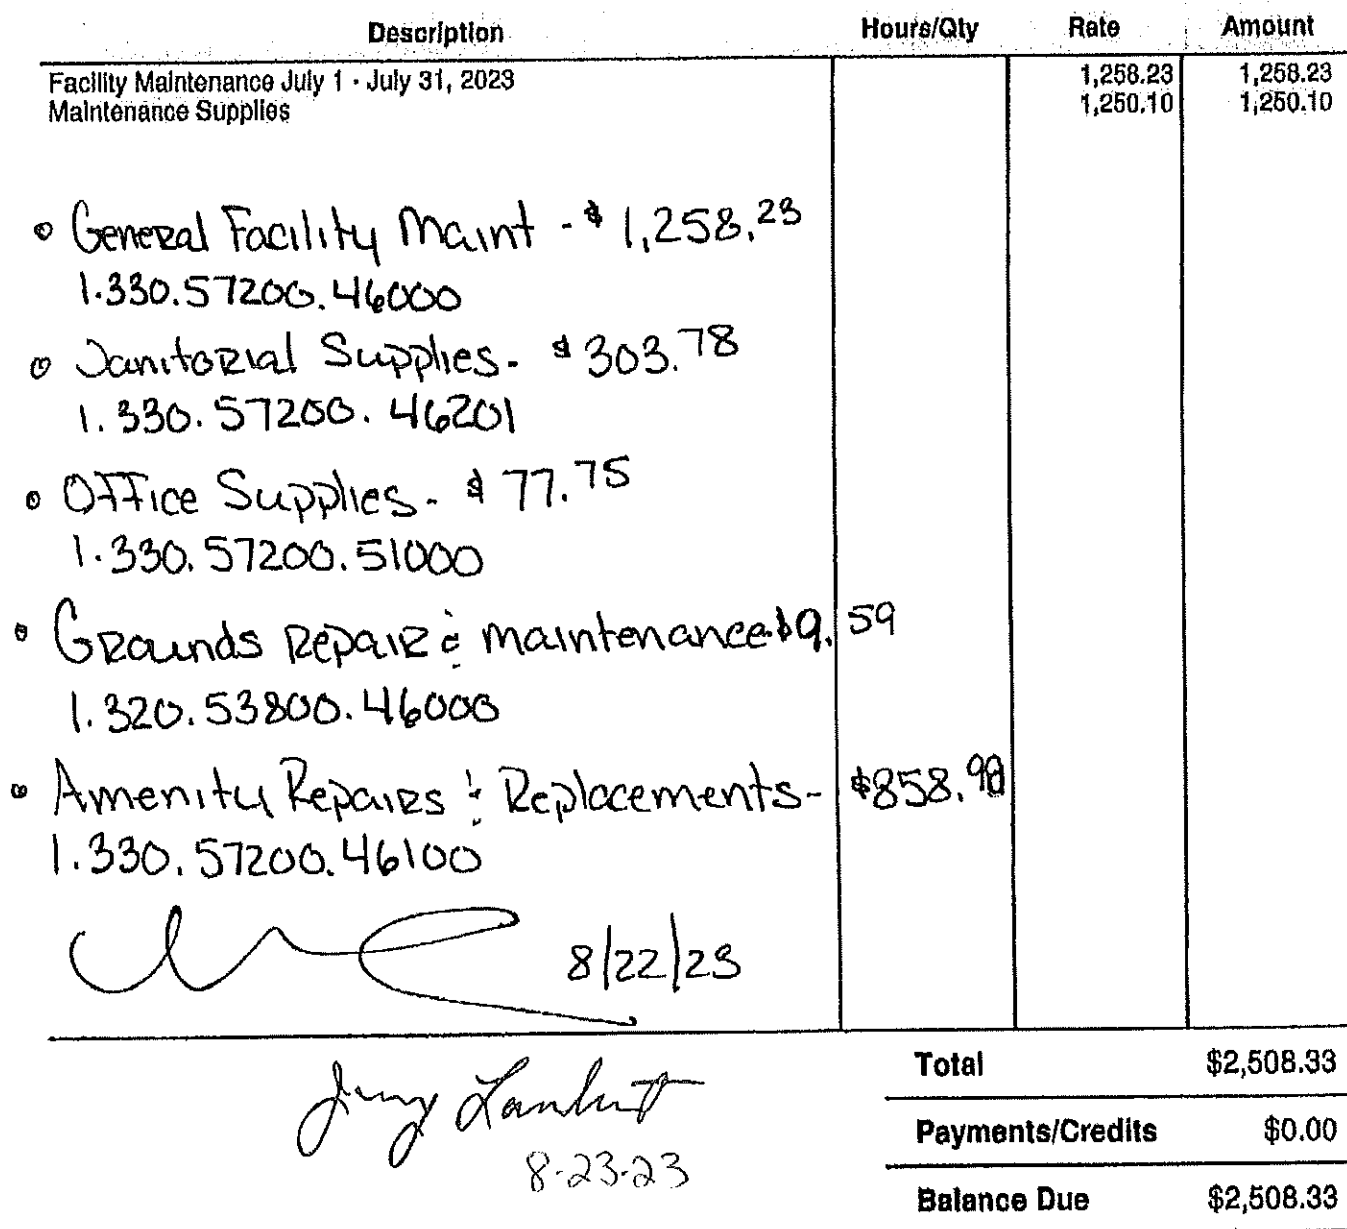 Description Hours/Qty Rate Amount
Facility Maintenance July 1 - July 31, 2023 1,258.23 1,258.23
Maintenance Supplies 1,250.10 1,250.10
General Facility Maint - $1,258.23
1.330.57200.46000
Janitorial Supplies - $303.78
1.330.57200.46201
Office Supplies - $77.75
1.330.57200.51000
Grounds Repair & maintenance - $9.59
1.320.53800.46000
Amenity Repairs & Replacements - $858.98
1.330.57200.46100
8/22/23
Total $2,508.33
Jerry Lambert
Payments/Credits $0.00
8-23-23
Balance Due $2,508.33